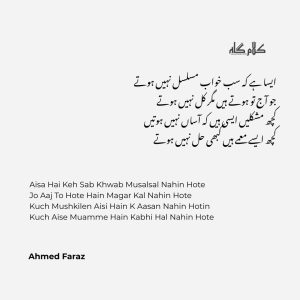 کلام گاہ
ایسا ہے کہ سب خواب مسلسل نہیں ہوتے
جو آج تو ہوتے ہیں مگر کل نہیں ہوتے
کچھ مشکلیں ایسی ہیں کہ آساں نہیں ہوتیں
کچھ ایسے معمے ہیں کبھی حل نہیں ہوتے
Aisa Hai Keh Sab Khwab Musalsal Nahin Hote
Jo Aaj To Hote Hain Magar Kal Nahin Hote
Kuch Mushkilen Aisi Hain K Aasan Nahin Hotin
Kuch Aise Muamme Hain Kabhi Hal Nahin Hote
Ahmed Faraz